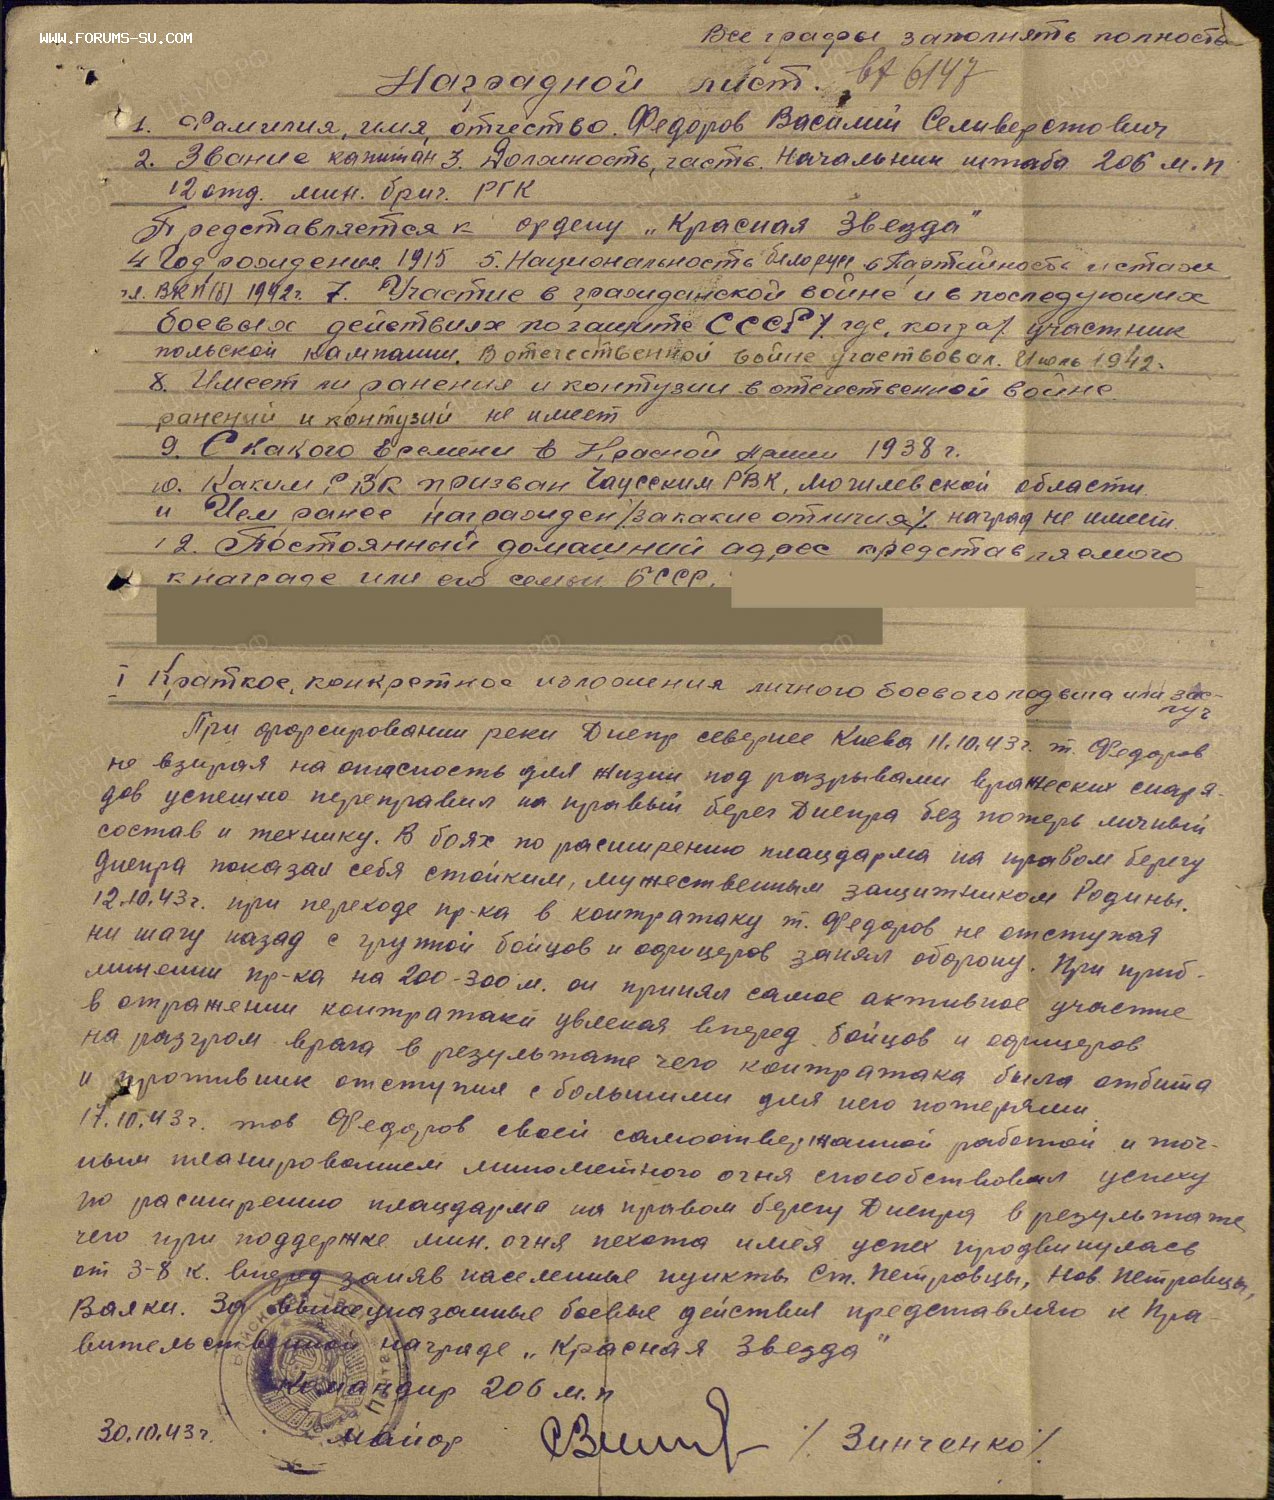 WWW.FORUMS-SU.COM
Все графы заполнять полностью
Наградной лист. вх 6147
1. Фамилия, имя, отчество. Федоров Василий Селиверстович
2. Звание капитан 3. Должность, часть. Начальник штаба 206 м.п
12 отд. мин. бриг. РГК
Представляется к ордену „Красная Звезда"
4 Год рождения 1915 5. Национальность белорус 6 Партийность и стаж
чл. ВКП(б) 1942г. 7. Участие в гражданской войне и в последующих
боевых действиях по защите СССР /. где, когда/ участник
польской кампании. В отечественной войне участвовал. Июль 1942.
8. Имеет ли ранения и контузии в отечественной войне
ранений и контузий не имеет
9. С какого времени в Красной армии 1938 г.
10. Каким РВК призван Чаусским РВК, Могилевской области
11 Чем ранее награжден /за какие отличия/. наград не имеет.
12. Постоянный домашний адрес представляемого
к награде или его семьи БССР,
I Краткое, конкретное изложения личного боевого подвига или зас-
луг
При форсировании реки Днепр севернее Киева 11.10.43г. т. Федоров
не взирая на опасность для жизни под разрывами вражеских снаря-
дов успешно переправил на правый берег Днепра без потерь личный
состав и технику. В боях по расширению плацдарма на правом берегу
Днепра показал себя стойким, мужественным защитником Родины.
12.10.43г. при переходе пр-ка в контратаку т. Федоров не отступая
ни шагу назад с группой бойцов и офицеров занял оборону. При приб-
лижении пр-ка на 200-300м. он принял самое активное участие
в отражении контратаки увлекая вперед бойцов и офицеров
на разгром врага в результате чего контратака была отбита
и противник отступил с большими для него потерями.
17.10.43г. тов Федоров своей самоотверженной работой и точ-
ным планированием минометного огня способствовал успеху
по расширению плацдарма на правом берегу Днепра в результате
чего при поддержке мин. огня пехота имея успех продвинулась
от 3-8 к. вперед заняв населенные пункты Ст. Петровцы, Нов. Петровцы,
Валки. За вышеуказанные боевые действия представляю к Пра-
вительственной награде „Красная Звезда"
Командир 206 м.п
30.10.43г. майор / Зинченко /.